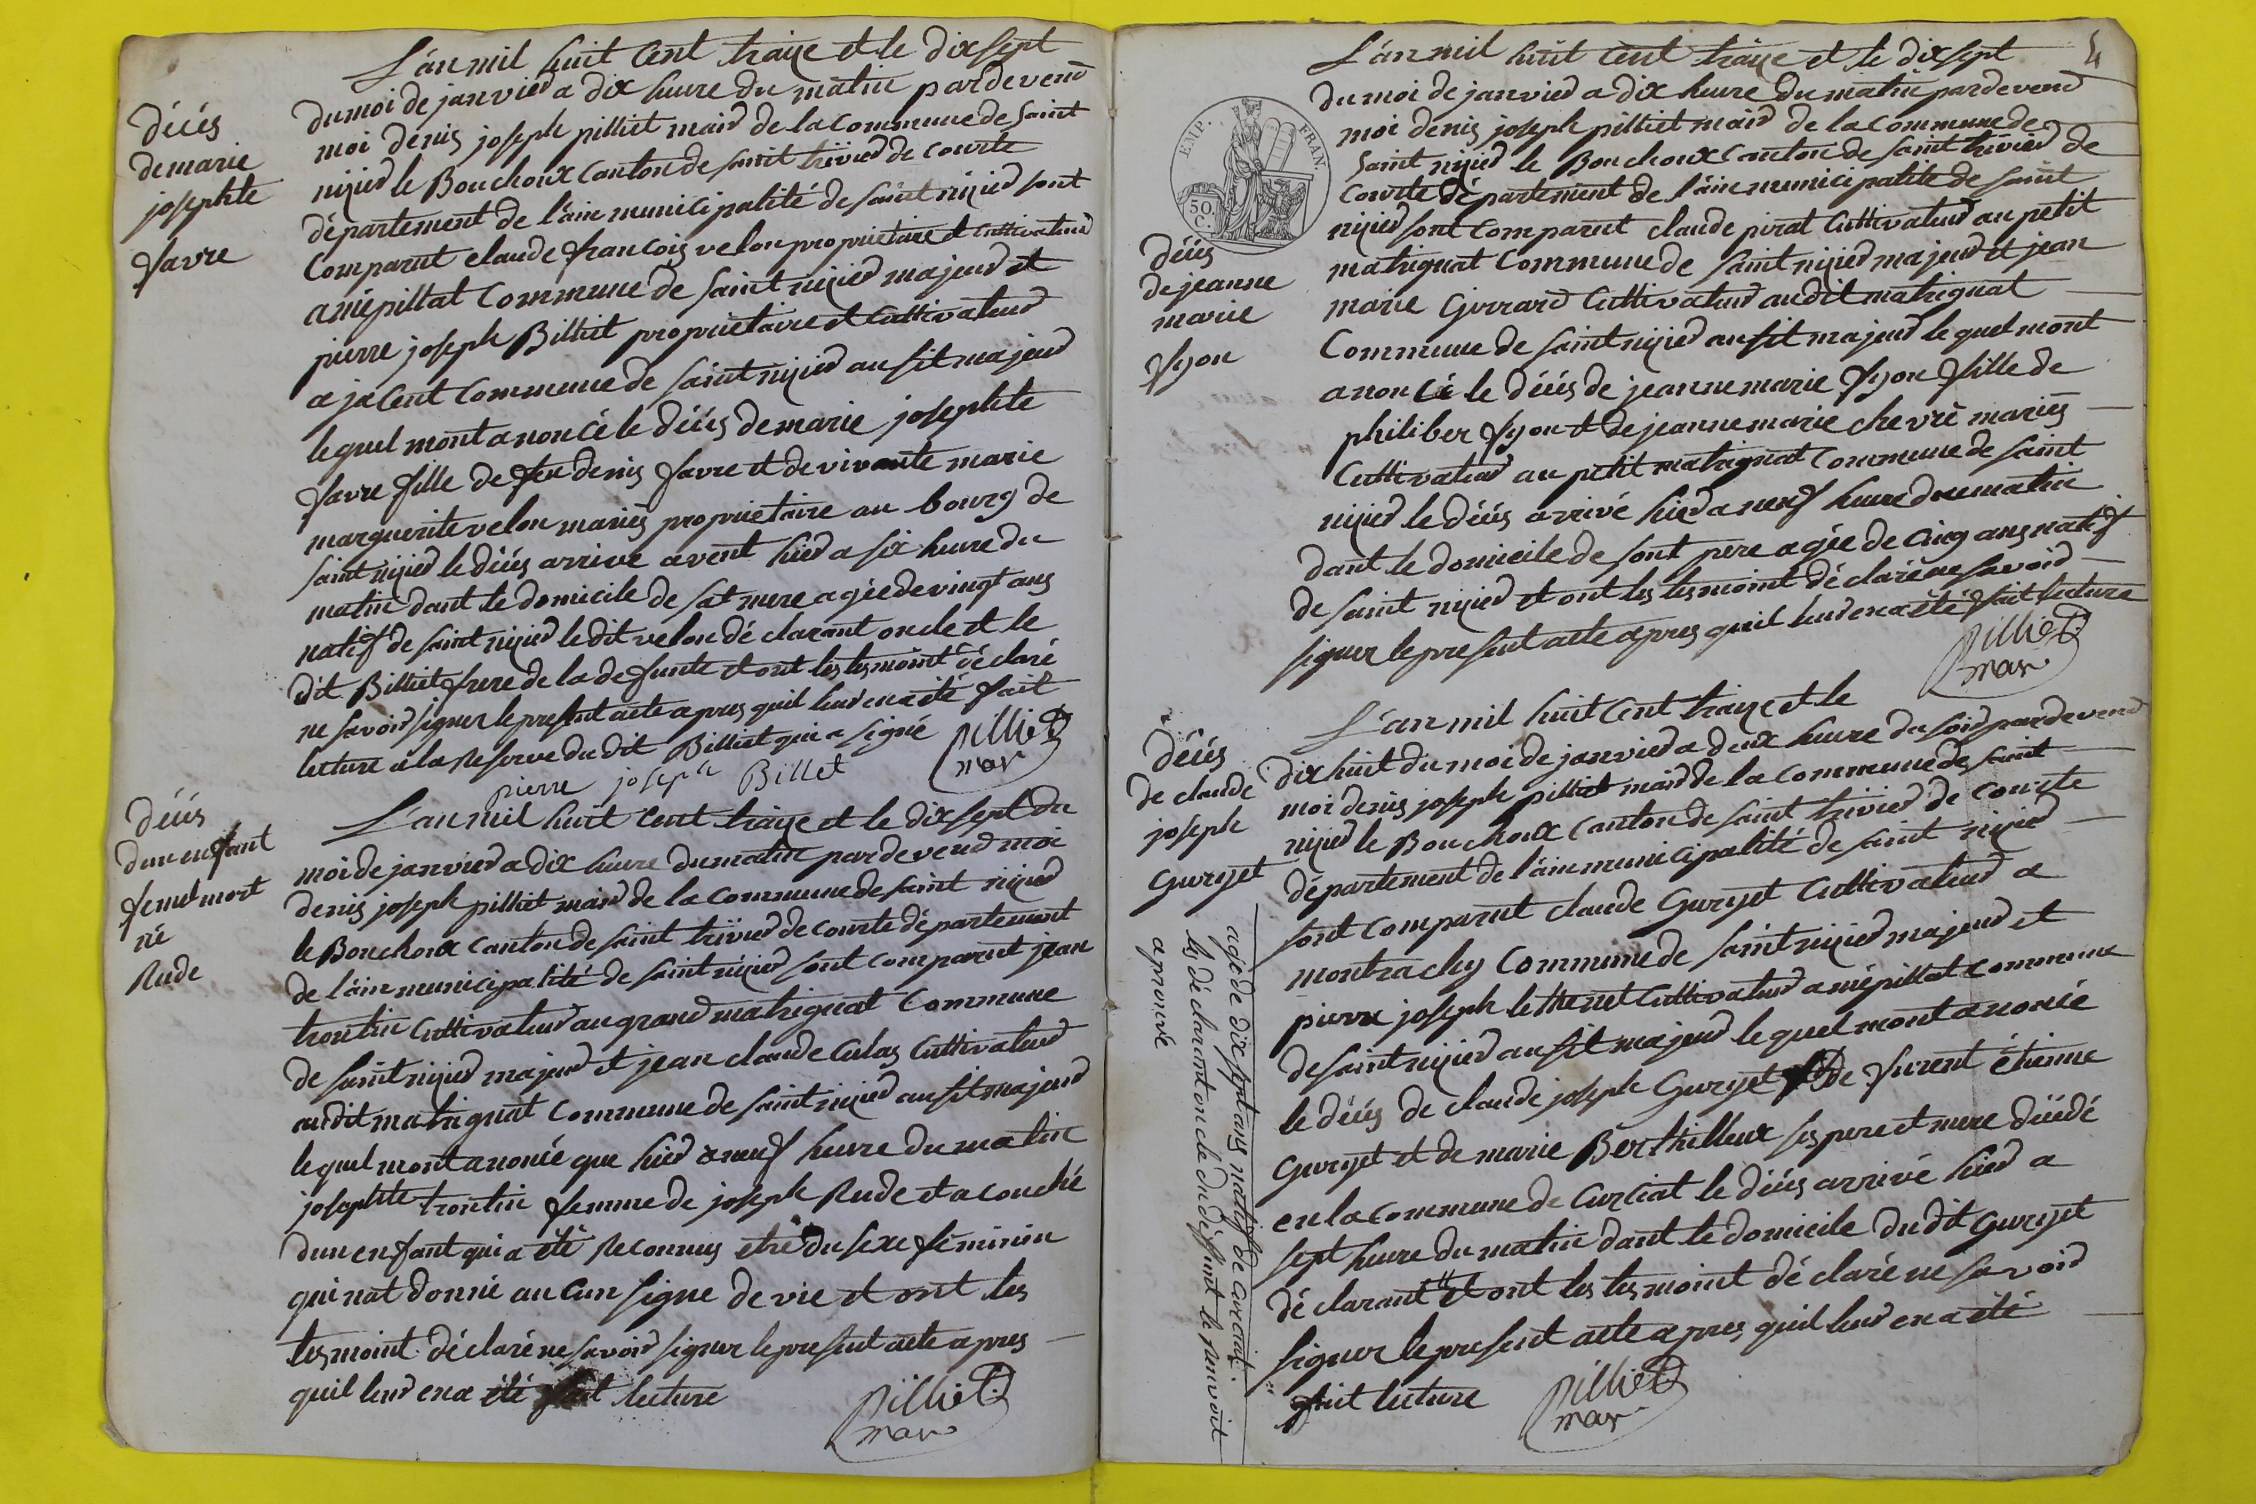 L'an mil huit cent traize et le dix sept
décés
de marie
josephte
favre
du moi de janvier a dix heure du matin pardevend
moi denis joseph pilliet maire de la commune de saint
nizier le Bouchoux canton de saint trivier de courte
département de l'ain municipalité de saint nizier sont
comparut claude francois velon proprietaire et cultivateur
a mépillat commune de saint nizier majeur et
pierre joseph Billiet proprietaire et cultivateur
a jacent commune de saint nizier ausit majeur
lequel mont anoncé le décés de marie josephte
favre fille de feu denis favre et de vivante marie
marguerite velon mariés proprietaire au bourg de
saint nizier le décés arrive avent hier a six heure du
matin dant le domicile de sat mere agée de vingt ans
natif de saint nizier le dit velon déclarant oncle et le
dit Billiet frere de la defunte et ont les tesmoint déclaré
ne savoir signer le present acte apres quil leur en a été fait
lecture a la Reserve du dit Billiet qui a signé
pilliet
mar
pierre joseph Billet
décés
dun enfant
femel mort
né
Rude
L'an mil huit cent traize et le dix sept du
moi de janvier a dix heure du matin pardevend moi
denis joseph pilliet maire de la commune de saint nizier
le Bouchoux canton de saint trivier de courte département
de l'ain municipalité de saint nizier sont comparut jean
trontin cultivateur au grand matrignat commune
de saint nizier majeur et jean claude culas cultivateur
audit matrignat commune de saint nizier ausit majeur
lequel mont anoncé que hier a neuf heure du matin
josephte trontin femme de joseph Rude et acouché
dun enfant qui a été Reconnus etre du sexe féminin
qui nat donné aucun signe de vie et ont les
tesmoint déclaré ne savoir signer le present acte apres
quil leur en a été fait lecture
pilliet
mar
4
EMP. FRAN.
50
C.
décés
de jeanne
marie
fyon
L'an mil huit cent traize et le dix sept
du moi de janvier a dix heure du matin pardevend
moi denis joseph pilliet maire de la commune de
saint nizier le Bouchoux canton de saint trivier de
courte département de l'ain municipalité de saint
nizier sont comparut claude pirat cultivateur au petit
matrignat commune de saint nizier majeur et jean
marie Girrard cultivateur audit matrignat
commune de saint nizier ausit majeur lequel mont
anoncé le décés de jeanne marie fyon fille de
philiber fyon et de jeanne marie chevré mariés
cultivateur au petit matrignat commune de saint
nizier le décés arrivé hier a neuf heure du matin
dant le domicile de sont pere agée de cinq ans natif
de saint nizier et ont les tesmoint déclaré ne savoir
signer le present acte apres quil leur en a été fait lecture
pilliet
mar
décés
de claude
joseph
Guryet
L'an mil huit cent traize et le
dix huit du moi de janvier a deux heure du soir pardevend
moi denis joseph pilliet maire de la commune de saint
nizier le Bouchoux canton de saint trivier de courte
département de l'ain municipalité de saint nizier
sont comparut claude Guryet cultivateur a
montrachy commune de saint nizier majeur et
pierre joseph cultivateur a mépillat commune
de saint nizier ausit majeur lequel mont anoncée
le décés de claude joseph Guryet de furent étienne
Guryet et de marie Berthilleux ses pere et mere décédé
en la commune de Curciat le décés arrivé hier a
sept heure du matin dant le domicile du dit Guryet
déclarant et ont les tesmoint déclaré ne savoir
signer le present acte apres quil leur en a été
fait lecture
pilliet
mar
agé de dix sept ans natif de curciat.
les déclarant oncle du deffunt le renvoit
aprouvé